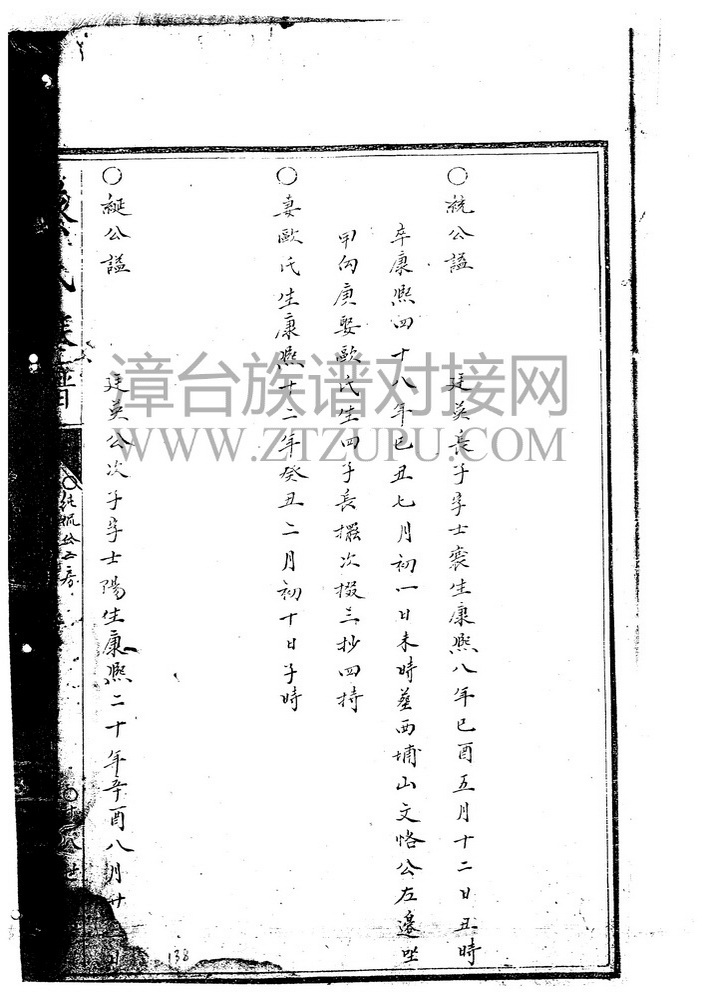 ○統公諡 廷英長子字士衮生康熙八年巳酉五月十二日丑時
卒康熙四十八年巳丑七月初一日未時葬西埔山文恪公左邉坐
甲向庚娶歐氏生四子長擢次掇三抄四持
○妻歐氏生康熙十二年癸丑二月初十日子時
○綖公諡 廷英公次子字士陽生康熙二十年辛酉八月廿
氏族譜
○純 公二房
○十八世
138
漳台族谱对接网
WWW.ZTZUPU.COM